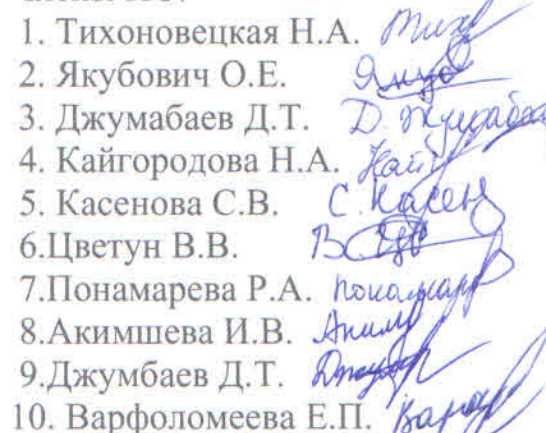 1. Тихоновецкая Н.А. Тихо
2. Якубович О.Е. Якуб
3. Джумабаев Д.Т. Д. Жумабаев
4. Кайгородова Н.А. Кайг
5. Касенова С.В. С. Касен
6.Цветун В.В.
7.Понамарева Р.А. Понамар
8.Акимшева И.В. Аким
9.Джумбаев Д.Т.
10. Варфоломеева Е.П. Варф